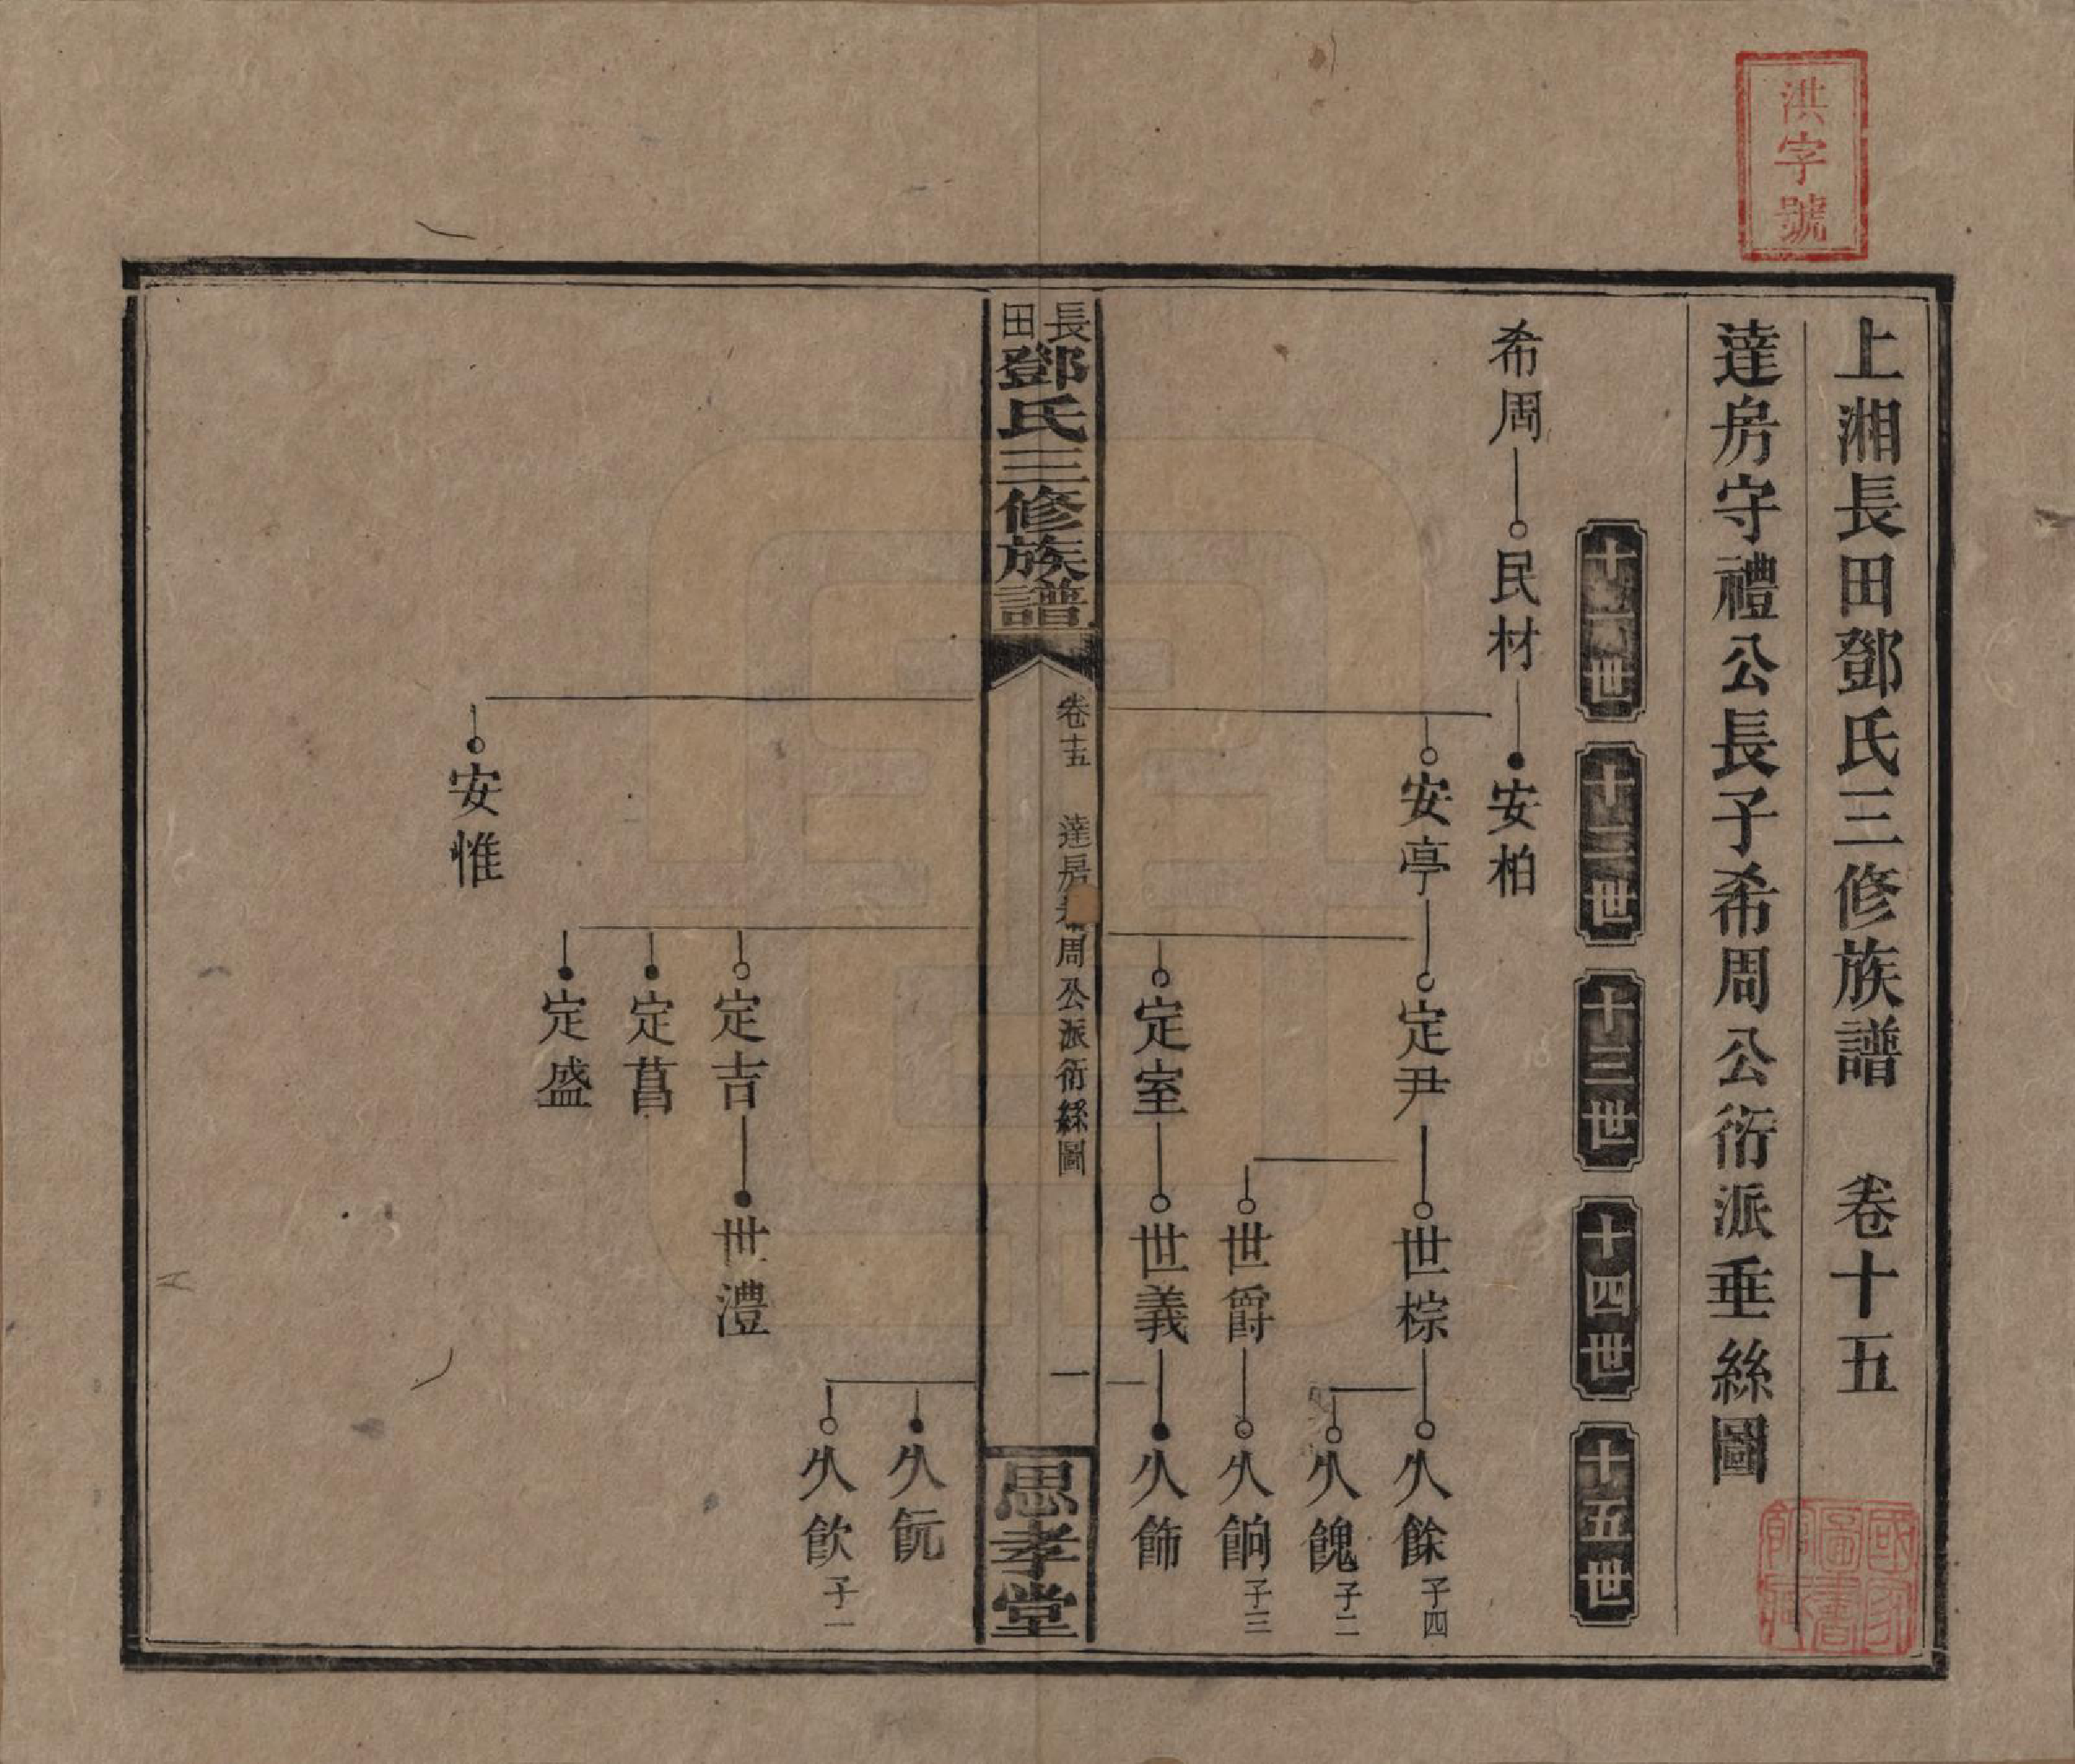 洪字號
上湘長田鄧氏三修族譜 卷十五
達房守禮公長子希周公衍派垂絲圖
十一世
十二世
十三世
十四世
十五世
希周 民材 安柏
安亭 定尹 世棕 久餘 子四
久餽 子二
世爵 久餉 子三
定室 世義 久飾
長田鄧氏三修族譜
卷十五 達房希周公派衍絲圖 一
思孝堂
久飩
久飲 子一
定吉 世澧
定菖
定盛
安惟